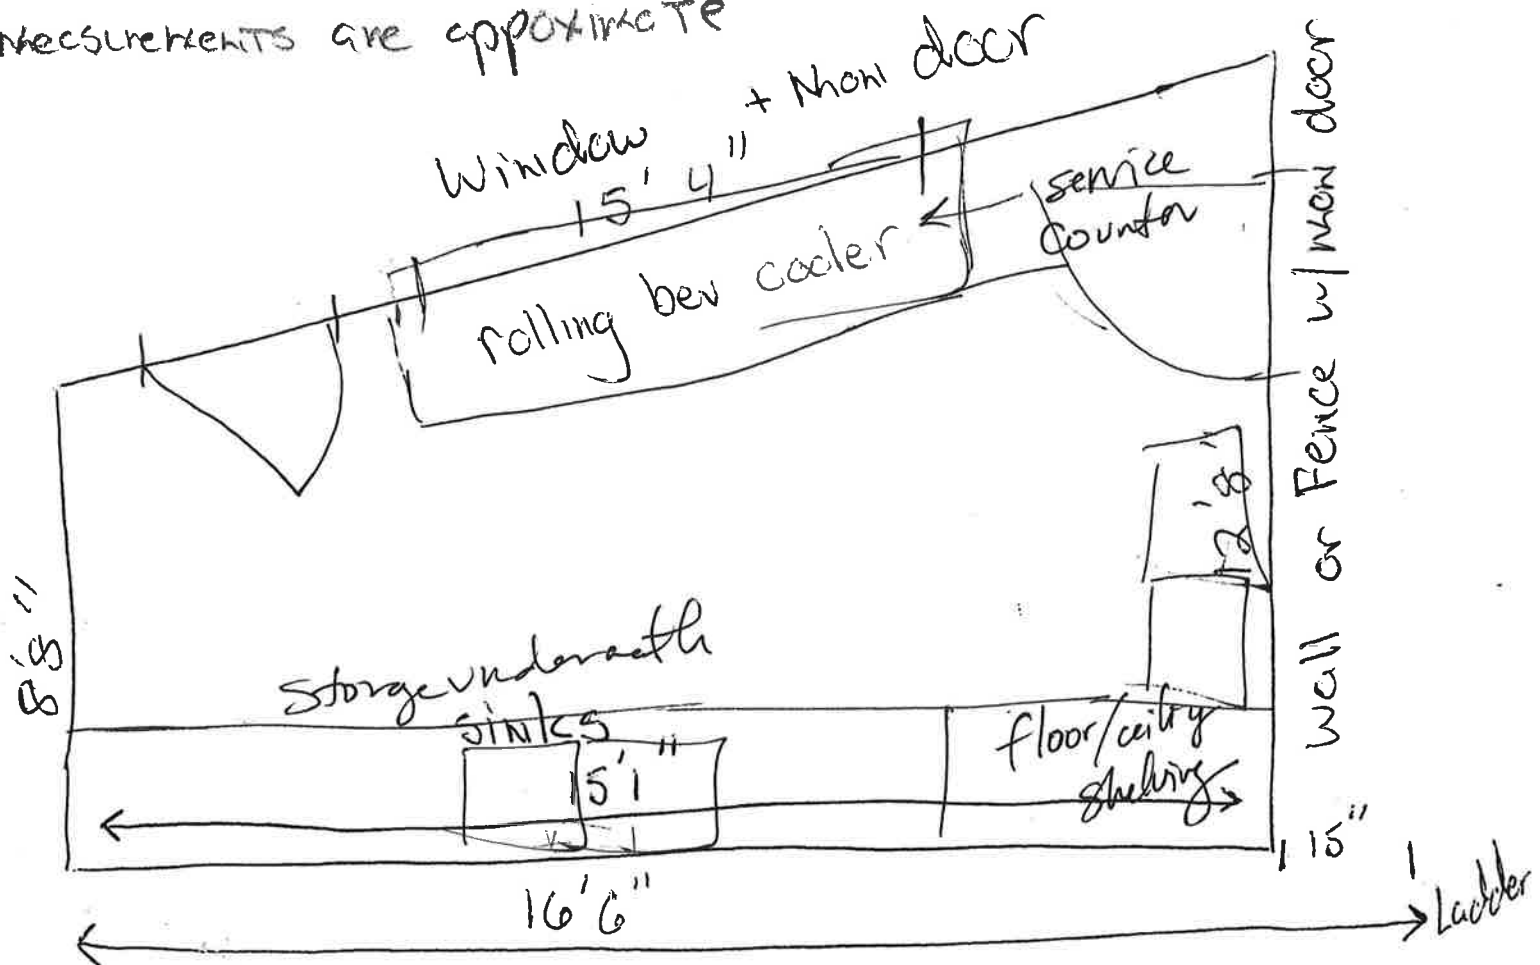 measurements are appoximate
Window + Mon door
15' 4"
service
counter
rolling bev cooler
wall or Fence w/ mon door
12'8"
8'8"
Storge underneath
sinks
15'1"
floor/ceiling
shelving
15"
16'6"
Ladder